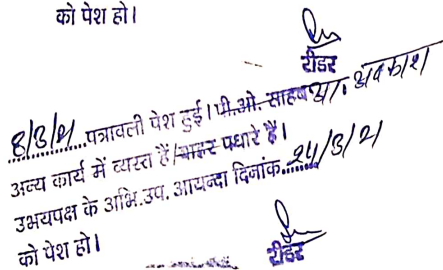 को पेश हो।
रीडर
8/3/21 पत्रावली पेश हुई। पी.ओ. साहब अवकाश
अन्य कार्य में व्यस्त हैं/बाहर पधारे हैं।
उभयपक्ष के अभि.उप. आयन्दा दिनांक 24/3/21
को पेश हो।
रीडर